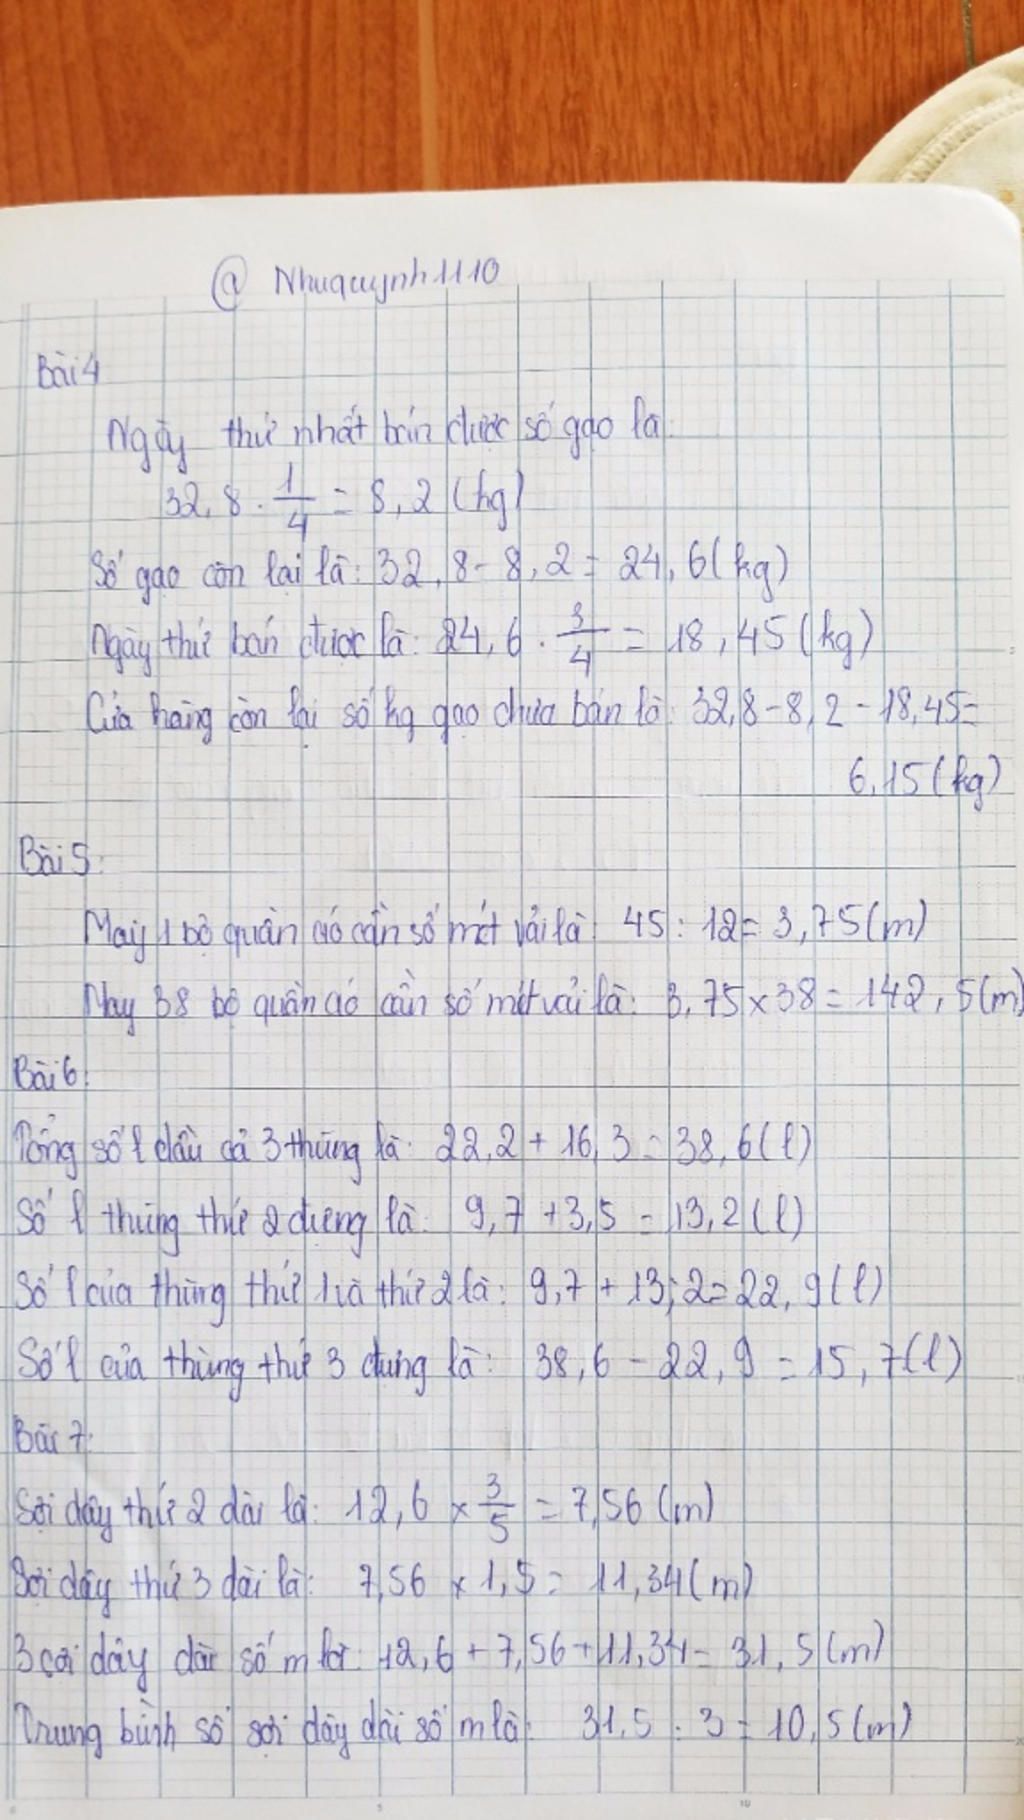 @ Nhuquynh1110
Bài 4
Ngày thứ nhất bán được số gạo là:
32,8 . 1/4 = 8,2 (kg)
Số gạo còn lại là: 32,8 - 8,2 = 24,6 (kg)
Ngày thứ bán được là: 24,6 . 3/4 = 18,45 (kg)
Cửa hàng còn lại số kg gạo chưa bán là: 32,8 - 8,2 - 18,45 =
6,15 (kg)
Bài 5:
May 1 bộ quần áo cần số mét vải là: 45 : 12 = 3,75 (m)
May 38 bộ quần áo cần số mét vải là: 3,75 x 38 = 142,5 (m)
Bài 6:
Tổng số l dầu cả 3 thùng là: 22,2 + 16,3 = 38,6 (l)
Số l thùng thứ 2 đựng là: 9,7 + 3,5 = 13,2 (l)
Số l của thùng thứ 1 và thứ 2 là: 9,7 + 13,2 = 22,9 (l)
Số l của thùng thứ 3 đựng là: 38,6 - 22,9 = 15,7 (l)
Bài 7:
Sợi dây thứ 2 dài là: 12,6 x 3/5 = 7,56 (m)
Sợi dây thứ 3 dài là: 7,56 x 1,5 = 11,34 (m)
3 sợi dây dài số m là: 12,6 + 7,56 + 11,34 = 31,5 (m)
Trung bình số sợi dây dài số m là: 31,5 : 3 = 10,5 (m)